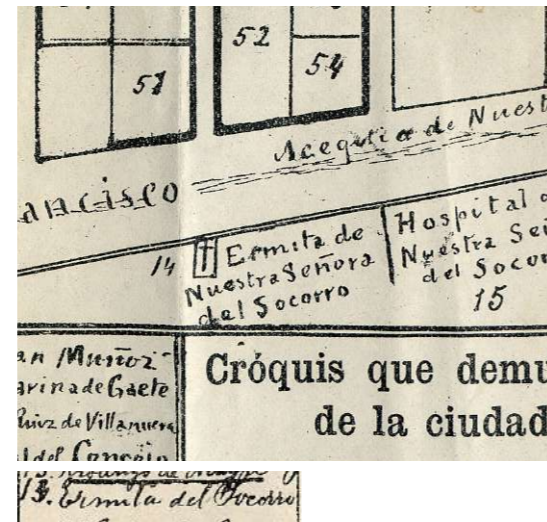 52
54
51
Acequia de Nuest
ancisco
14
Ermita de
Nuestra Señora
del Socorro
Hospital d
Nuestra Señ
del Socor
15
an Muñoz
arina de Gaete
Ruiz de Villanueva
del Concejo
Cróquis que demu
de la ciudad
13. Ermita del Socorro